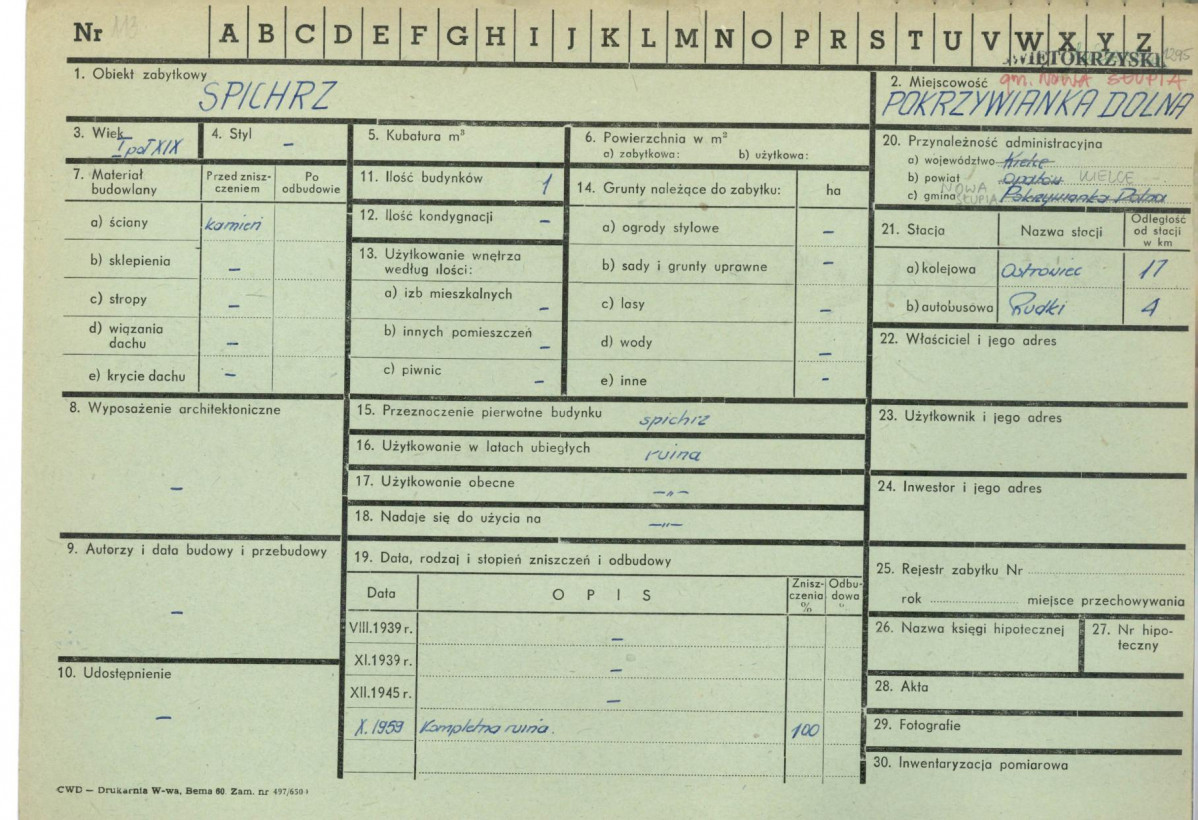 Nr 113 A B C D E F G H I J K L M N O P R S T U V W X Y Z
ŚWIĘTOKRZYSKI 1295
1. Obiekt zabytkowy
SPICHRZ
gm. NOWA SŁUPIA
2. Miejscowość
POKRZYWIANKA DOLNA
3. Wiek
I poł XIX
4. Styl
–
5. Kubatura m³
6. Powierzchnia w m²
a) zabytkowa: b) użytkowa:
7. Materiał budowlany
Przed znisz-
czeniem
Po
odbudowie
a) ściany kamień
b) sklepienia –
c) stropy –
d) wiązania
dachu –
e) krycie dachu –
8. Wyposażenie architektoniczne
–
9. Autorzy i data budowy i przebudowy
–
10. Udostępnienie
–
11. Ilość budynków 1
12. Ilość kondygnacji –
13. Użytkowanie wnętrza
według ilości:
a) izb mieszkalnych –
b) innych pomieszczeń –
c) piwnic –
14. Grunty należące do zabytku: ha
a) ogrody stylowe –
b) sady i grunty uprawne –
c) lasy –
d) wody –
e) inne –
15. Przeznoczenie pierwotne budynku spichrz
16. Użytkowanie w latach ubiegłych ruina
17. Użytkowanie obecne –„–
18. Nadaje się do użycia na –„–
19. Data, rodzaj i stopień zniszczeń i odbudowy
Data OPIS
Znisz-
czenia
%
Odbu-
dowa
VIII.1939 r. –
XI.1939 r. –
XII.1945 r. –
X.1959 Kompletna ruina. 100
20. Przynależność administracyjna
a) województwo Kielce
b) powiat Opatów KIELCE
NOWA SŁUPIA
c) gmina Pokrzywianka Dolna
21. Stacja Nazwa stacji
Odległość
od stacji
w km
a) kolejowa Ostrowiec 17
b) autobusowa Rudki 4
22. Właściciel i jego adres
23. Użytkownik i jego adres
24. Inwestor i jego adres
25. Rejestr zabytku Nr
rok miejsce przechowywania
26. Nazwa księgi hipotecznej
27. Nr hipo-
teczny
28. Akta
29. Fotografie
30. Inwentaryzacja pomiarowa
CWD — Drukarnia W-wa, Bema 60. Zam. nr 497/650